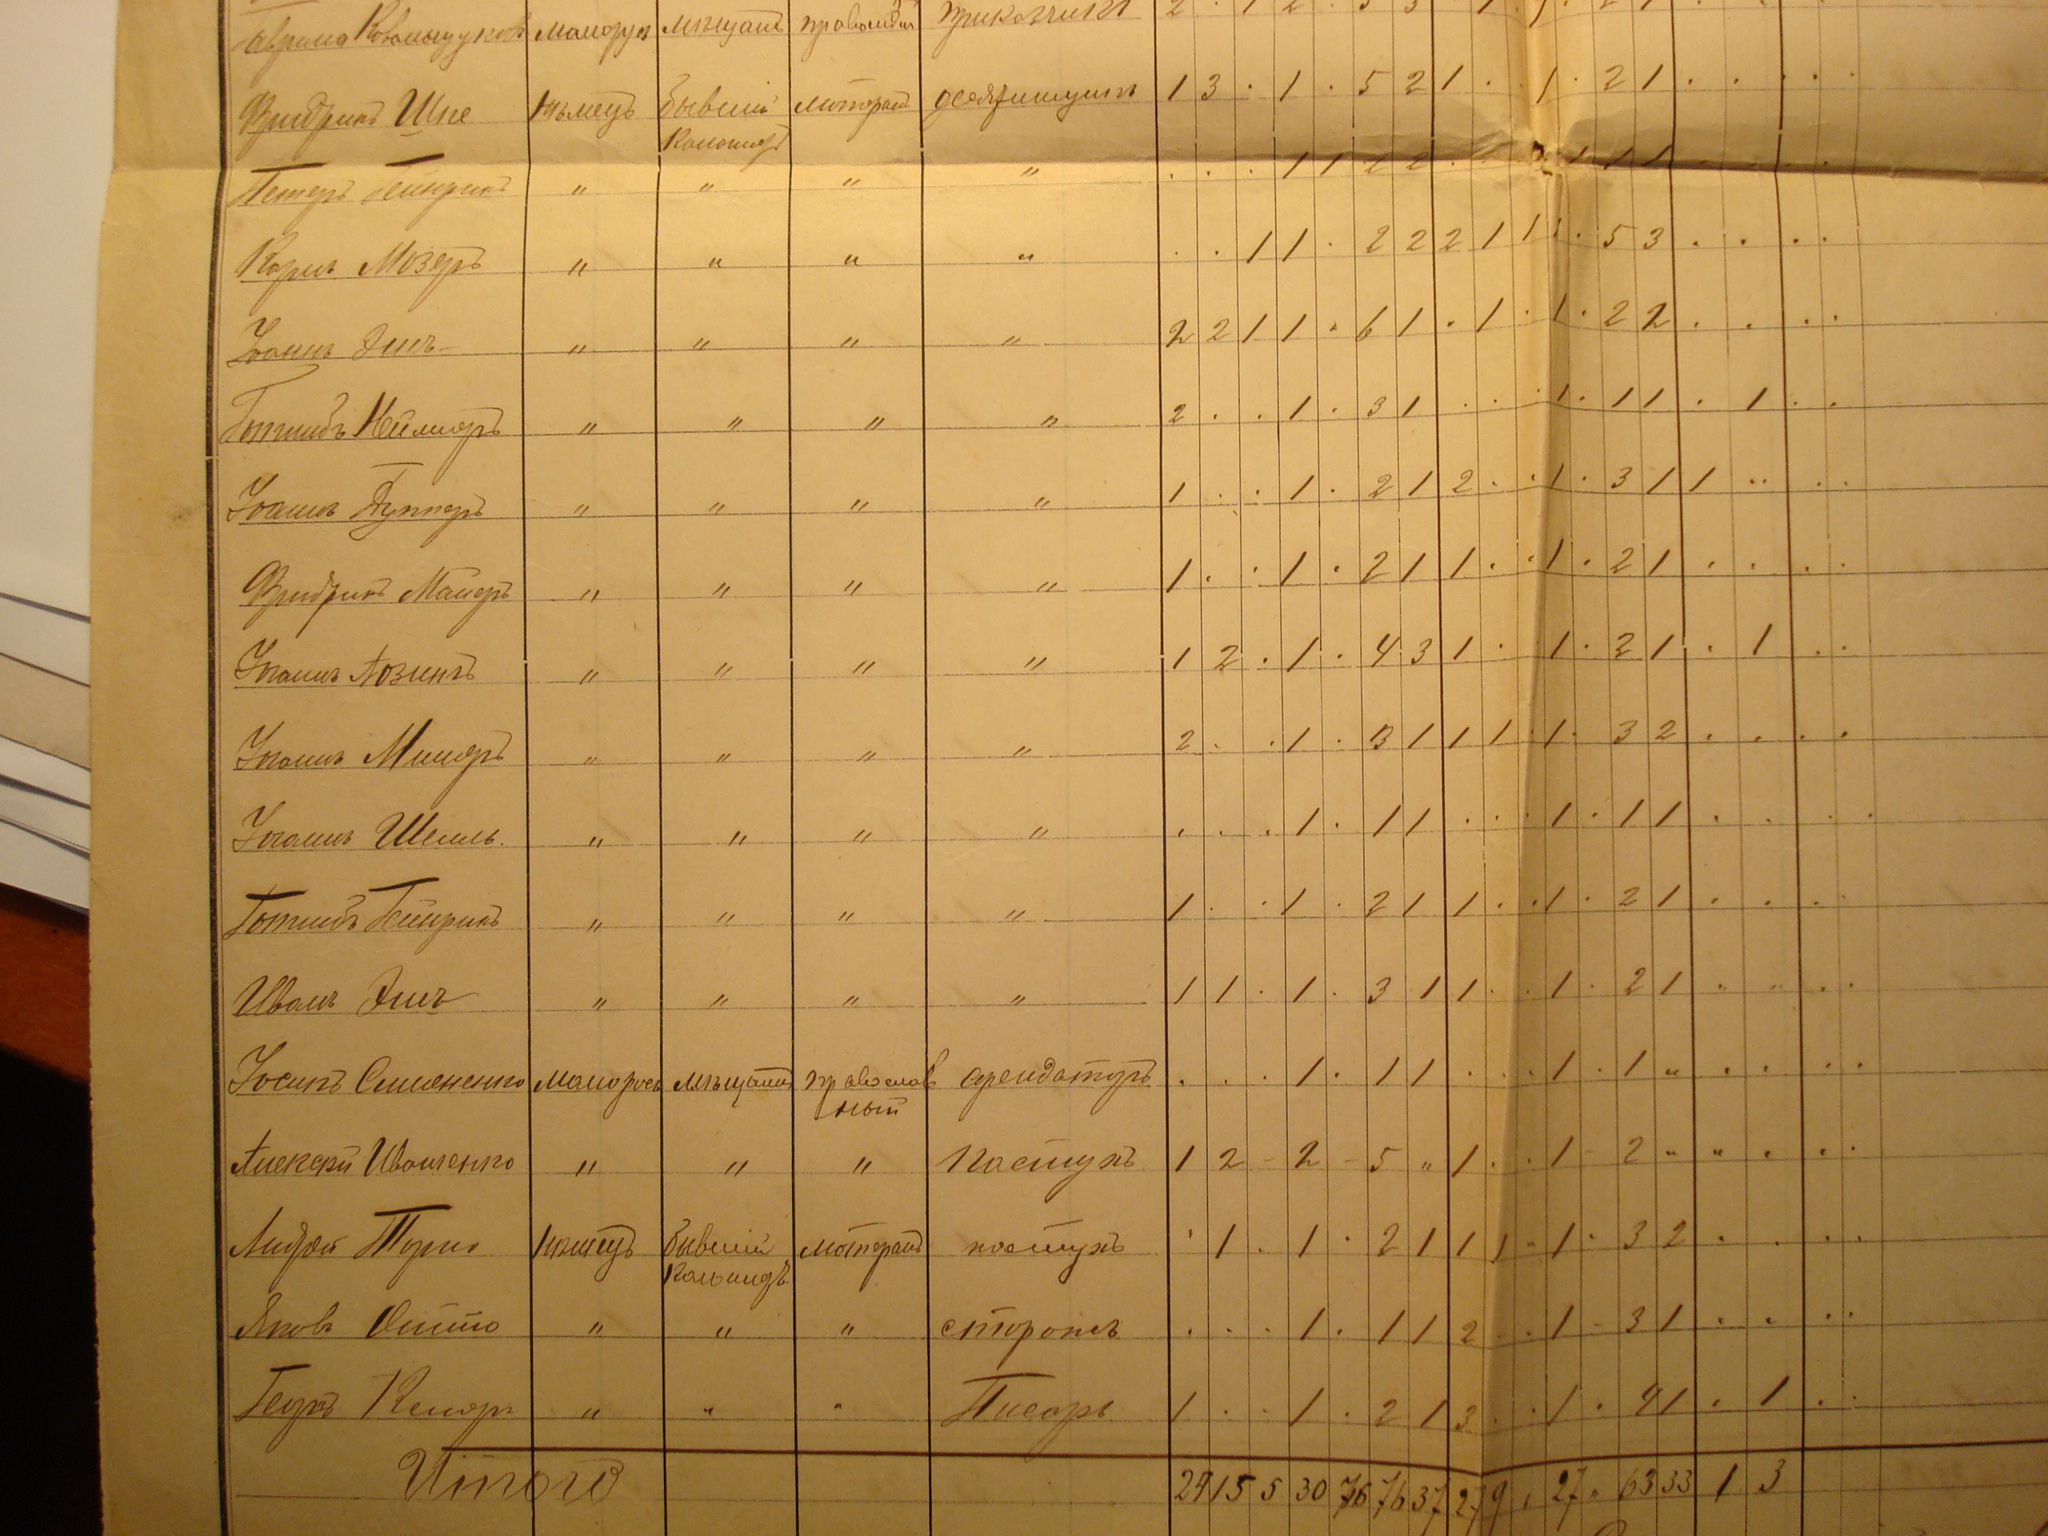 Гаврила малорусъ мѣщанинъ православн прикащикъ 2 . 1 2 . 5 3 . 1 . 1 . 2 1 . . . . .
Фридрихъ Шке Нѣмецъ бывшій лютеранъ десятинщикъ 1 3 . 1 . 5 2 1 . . 1 . 2 1 . . . . .
Колонистъ
Петеръ Гейнрихъ " " " " . . . 1 1 2 2 . . . 1 . 1 1 . . . .
Карлъ Мозеръ " " " " . . 1 1 . 2 2 2 1 1 1 . 5 3 . . . .
Іоганъ Энгъ " " " " 2 2 1 1 . 6 1 . 1 . 1 . 2 2 . . . .
Готлибъ Неймаеръ " " " " 2 . . 1 . 3 1 . . . 1 . 1 1 . 1 . .
Іоганъ " " " " 1 . . 1 . 2 1 2 . . 1 . 3 1 1 .. . .
Фридрихъ Маеръ " " " " 1 . . 1 . 2 1 1 . . 1 . 2 1 . . . .
Іоганъ Лозингъ " " " " 1 2 . 1 . 4 3 1 . . 1 . 2 1 . 1 . .
Іоганъ Миллеръ " " " " 2 . . 1 . 3 1 1 1 . 1 . 3 2 . . . .
Іоганъ Шелль. " " " " . . . 1 . 1 1 . . . 1 . 1 1 . . . .
Готлибъ Гейнрихъ " " " " 1 . . 1 . 2 1 1 . . 1 . 2 1 . . . .
Иванъ Энгъ " " " " 1 1 . 1 . 3 1 1 . . 1 . 2 1 . " . .
Іосипъ Симоненко малоросъ мѣщанинъ православ арендаторъ . . . 1 . 1 1 . . . 1 . 1 " . . . .
ный
Алексѣй Иващенко " " " Пастухъ 1 2 - 2 - 5 " 1 . . 1 - 2 " " . . .
Андрей Торно Нѣмецъ бывшій лютеранъ пастухъ . 1 . 1 . 2 1 1 1 . 1 . 3 2 . . . .
Колонистъ
Яковъ Отто " " " сторожъ . . . 1 . 1 1 2 . . 1 . 3 1 . . . .
Георгъ " " " Писарь 1 . . 1 . 2 1 3 . . 1 . 4 1 . 1 . .
Итого 29 15 5 30 76 37 27 9 . 27 . 63 33 1 3